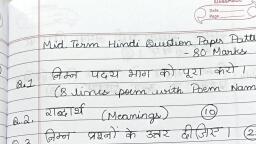 Date
Page
Mid Term Hindi Question Paper Patt
- 80 Marks
Q.1 निम्न पदय भाग को पूरा करो ।
(8 lines poem with Poem Nam
Q.2. शब्दार्थ (Meanings) (10)
निम्न प्रश्नों के उत्तर दीजिए । (2